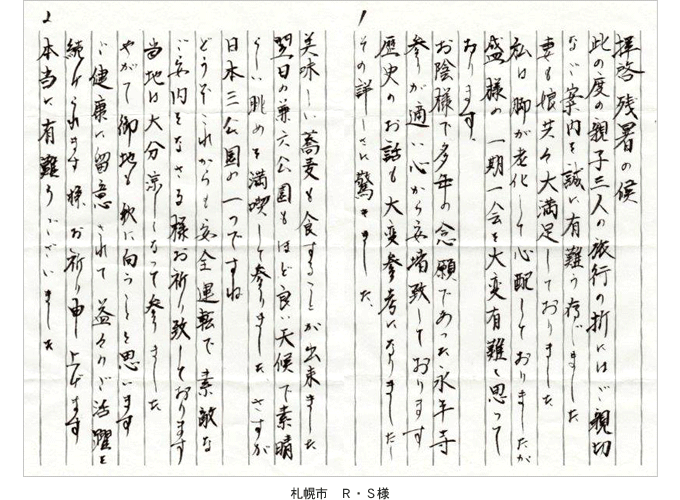 1
拝啓 残暑の候
此の度の親子三人の旅行の折にはご親切
なご案内を誠に有難う存じました
妻も娘共々大満足しておりました
私は脚が老化して心配しておりましたが
盛様の一期一会を大変有難く思って
おります。
お陰様で多年の念願であった永平寺
参りが適い心から安堵致しております
歴史のお話も大変参考になりましたし
その詳しさに驚きました。
2
美味しい蕎麦も食することが出来ました
翌日の兼六公園もほど良い天候で素晴
らしい眺めを満喫して参りました。さすが
日本三公園の一つですね
どうぞこれからも安全運転で素敵な
ご案内をなさる様お祈り致しております
当地は大分涼しくなって参りました
やがて御地も秋に向うことと思います
ご健康に留意されて益々のご活躍を
続けられます様お祈り申し上げます
本当に有難うございました
札幌市 R・S様